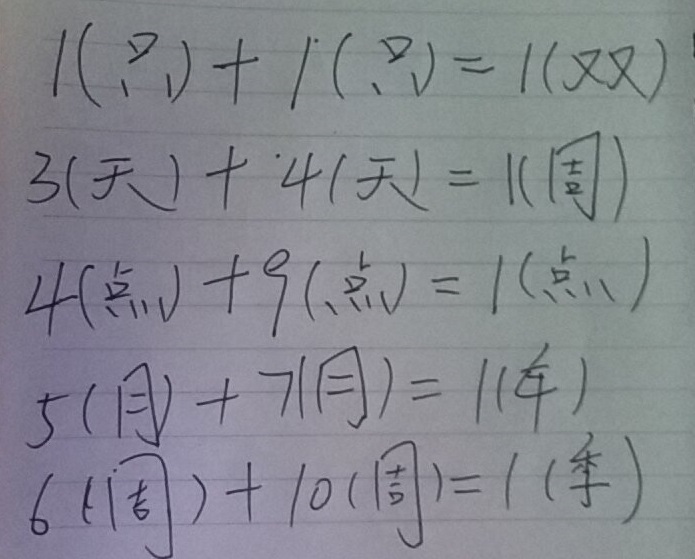 1(只)+1(只)=1(双)
3(天)+4(天)=1(周)
4(点)+9(点)=1(点)
5(月)+7(月)=1(年)
6(周)+10(周)=1(季)